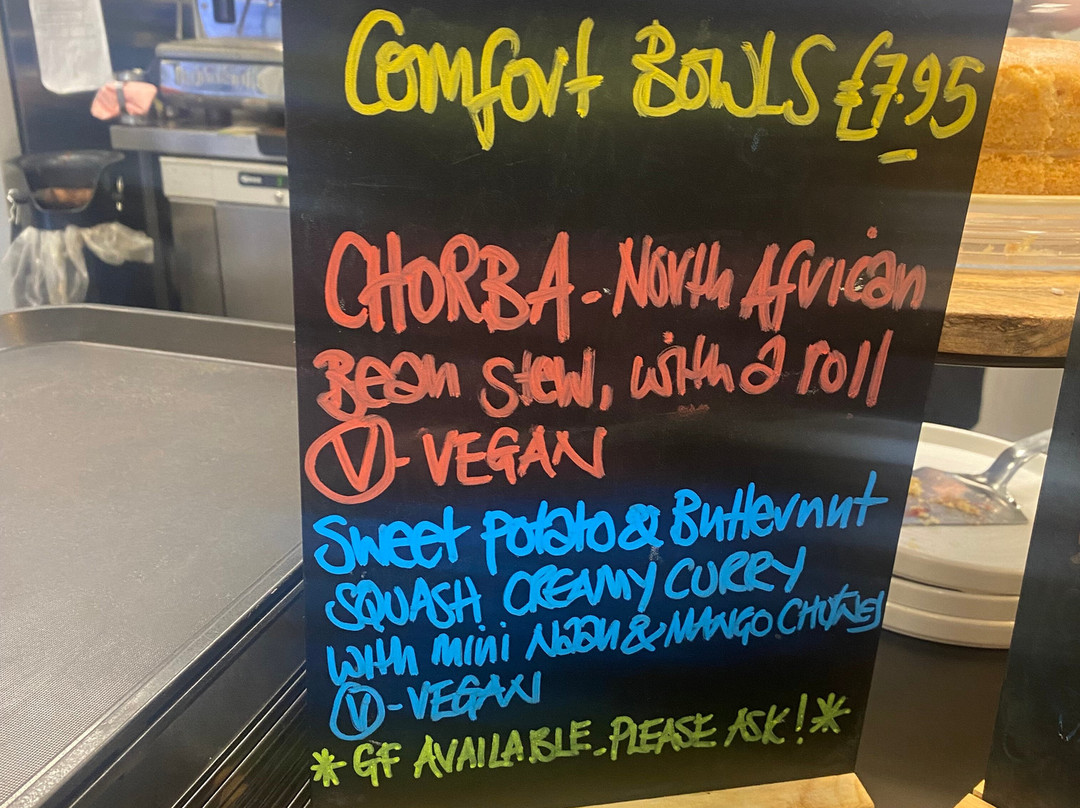 Comfort BOWLS £7.95
CHORBA - North African
Bean stew, with a roll
V - VEGAN
Sweet potato & Butternut
SQUASH CREAMY CURRY
with mini Naan & MANGO CHUTNEY
V - VEGAN
* GF AVAILABLE - PLEASE ASK! *